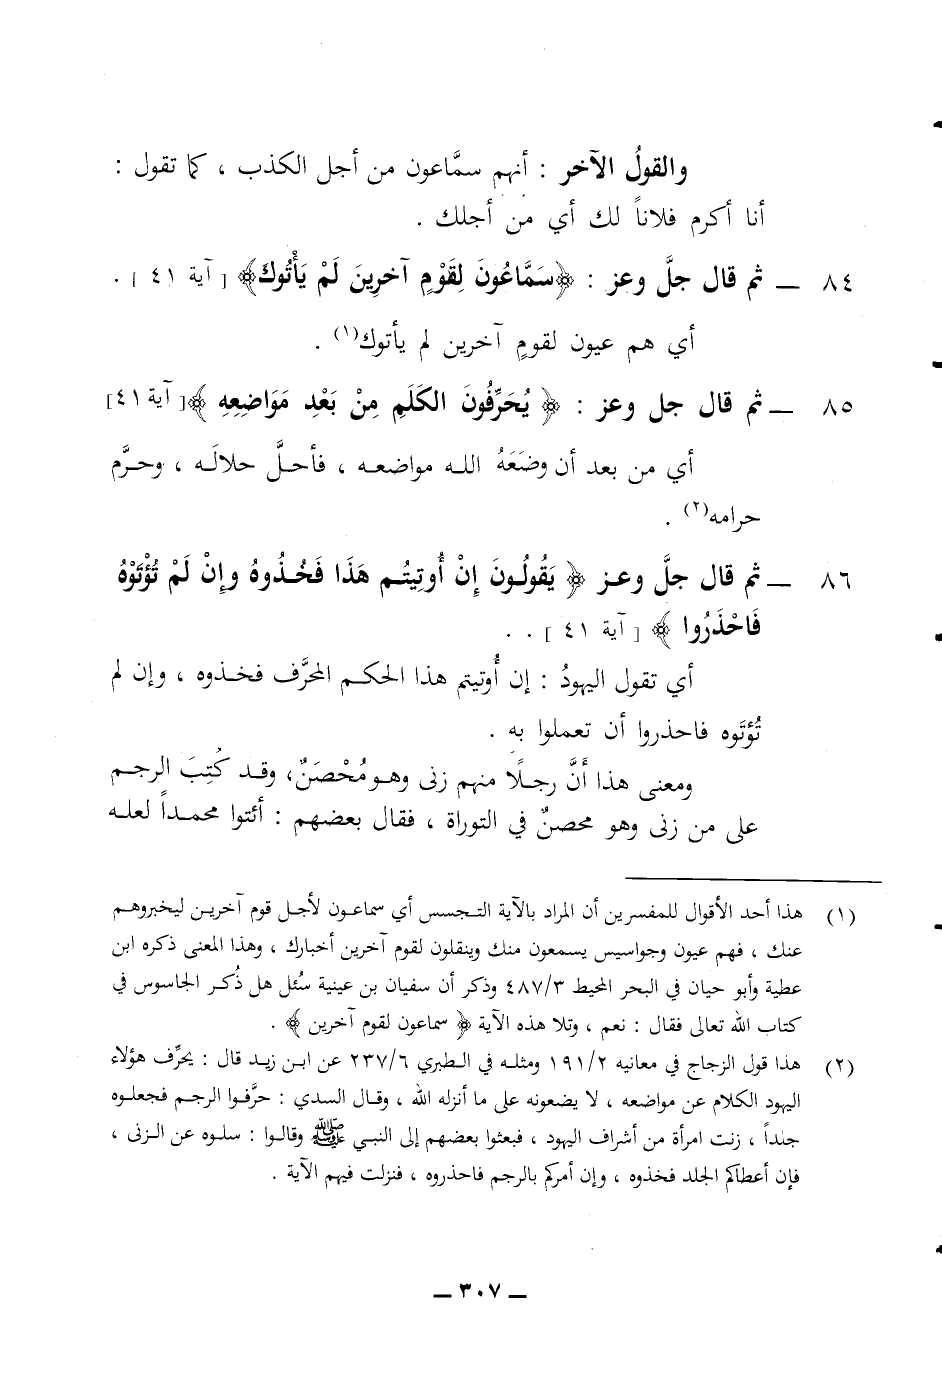 والقولُ الآخر : أنهم سمَّاعون من أجل الكذب ، كما تقول :
أنا أكرم فلاناً لك أي من أجلك .
٨٤ ــ ثم قال جلَّ وعز : ﴿سَمَّاعُونَ لِقَوْمٍ آخرِينَ لَمْ يَأْتُوكَ﴾ [ آية ٤١ ] .
أي هم عيون لقومٍ آخرين لم يأتوك(١) .
٨٥ ــ ثم قال جل وعز : ﴿ يُحَرِّفُونَ الكَلَمِ مِنْ بَعْدِ مَوَاضِعِهِ ﴾[ آية ٤١]
أي من بعد أن وضَعَهُ اللـه مواضعـه ، فأحـلَّ حلالَـه ، وحـرَّم
حرامه(٢) .
٨٦ ــ ثم قال جلَّ وعـز ﴿ يَقُولُـونَ إِنْ أُوتِيتُـم هَذَا فَخُـذُوهُ وإِنْ لَمْ تُؤْتَوْهُ
فَاحْذَرُوا ﴾ [ آية ٤١ ] . .
أي تقول اليهودُ : إن أُوتيتم هذا الحكـم المحرَّف فخـذوه ، وإن لم
تُؤتَوه فاحذروا أن تعملوا به .
ومعنى هذا أَنَّ رجـلًا منهم زنى وهـو مُحْصَنٌ، وقـد كُتِبَ الرجـم
على من زنى وهو محصنٌ في التوراة ، فقال بعضهم : أئتوا محمـداً لعلـه
(١) هذا أحد الأقوال للمفسرين أن المراد بالآية التـجسس أي سماعـون لأجل قوم آخريـن ليخبروهـم
عنك ، فهم عيون وجواسيس يسمعون منك وينقلون لقوم آخرين أخبارك ، وهذا المعنى ذكره ابن
عطية وأبو حيان في البحر المحيط ٤٨٧/٣ وذكر أن سفيان بن عيينة سُئل هل ذُكـر الجاسوس في
كتاب الله تعالى فقال : نعم ، وتلا هذه الآية ﴿ سماعون لقوم آخرين ﴾ .
(٢) هذا قول الزجاج في معانيه ١٩١/٢ ومثلـه في الـطبري ٢٣٧/٦ عن ابـن زيـد قال : يحرِّف هؤلاء
اليهود الكلام عن مواضعه ، لا يضعونه على ما أنزله الله ، وقـال السدي : حرَّفـوا الرجـم فجعلـوه
جلـداً ، زنت امرأة من أشراف اليهود ، فبعثوا بعضهم إلى النبي ﷺ وقالـوا : سلـوه عن الـزنى ،
فإن أعطاكم الجلد فخذوه ، وإن أمركم بالرجم فاحذروه ، فنزلت فيهم الآية .
ــ ٣٠٧ ــ